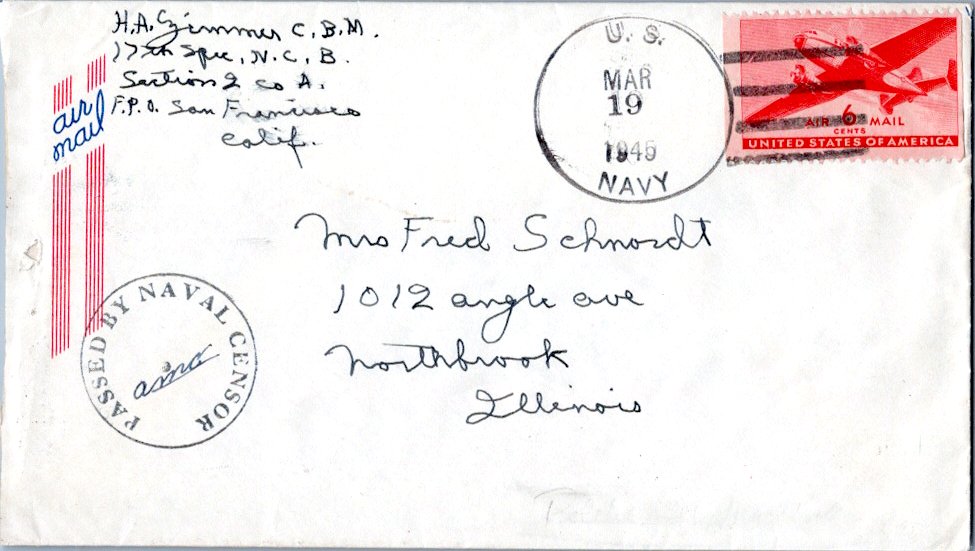 H.A. Zimmer C.B.M.
17th Spec. N.C.B.
Section 2 co A.
F.P.O. San Francisco
Calif.
air
mail
U. S.
MAR
19
1945
NAVY
AIR 6 MAIL
CENTS
UNITED STATES OF AMERICA
Mrs Fred Schnordt
1012 angle ave
Northbrook
Illinois
PASSED BY NAVAL CENSOR